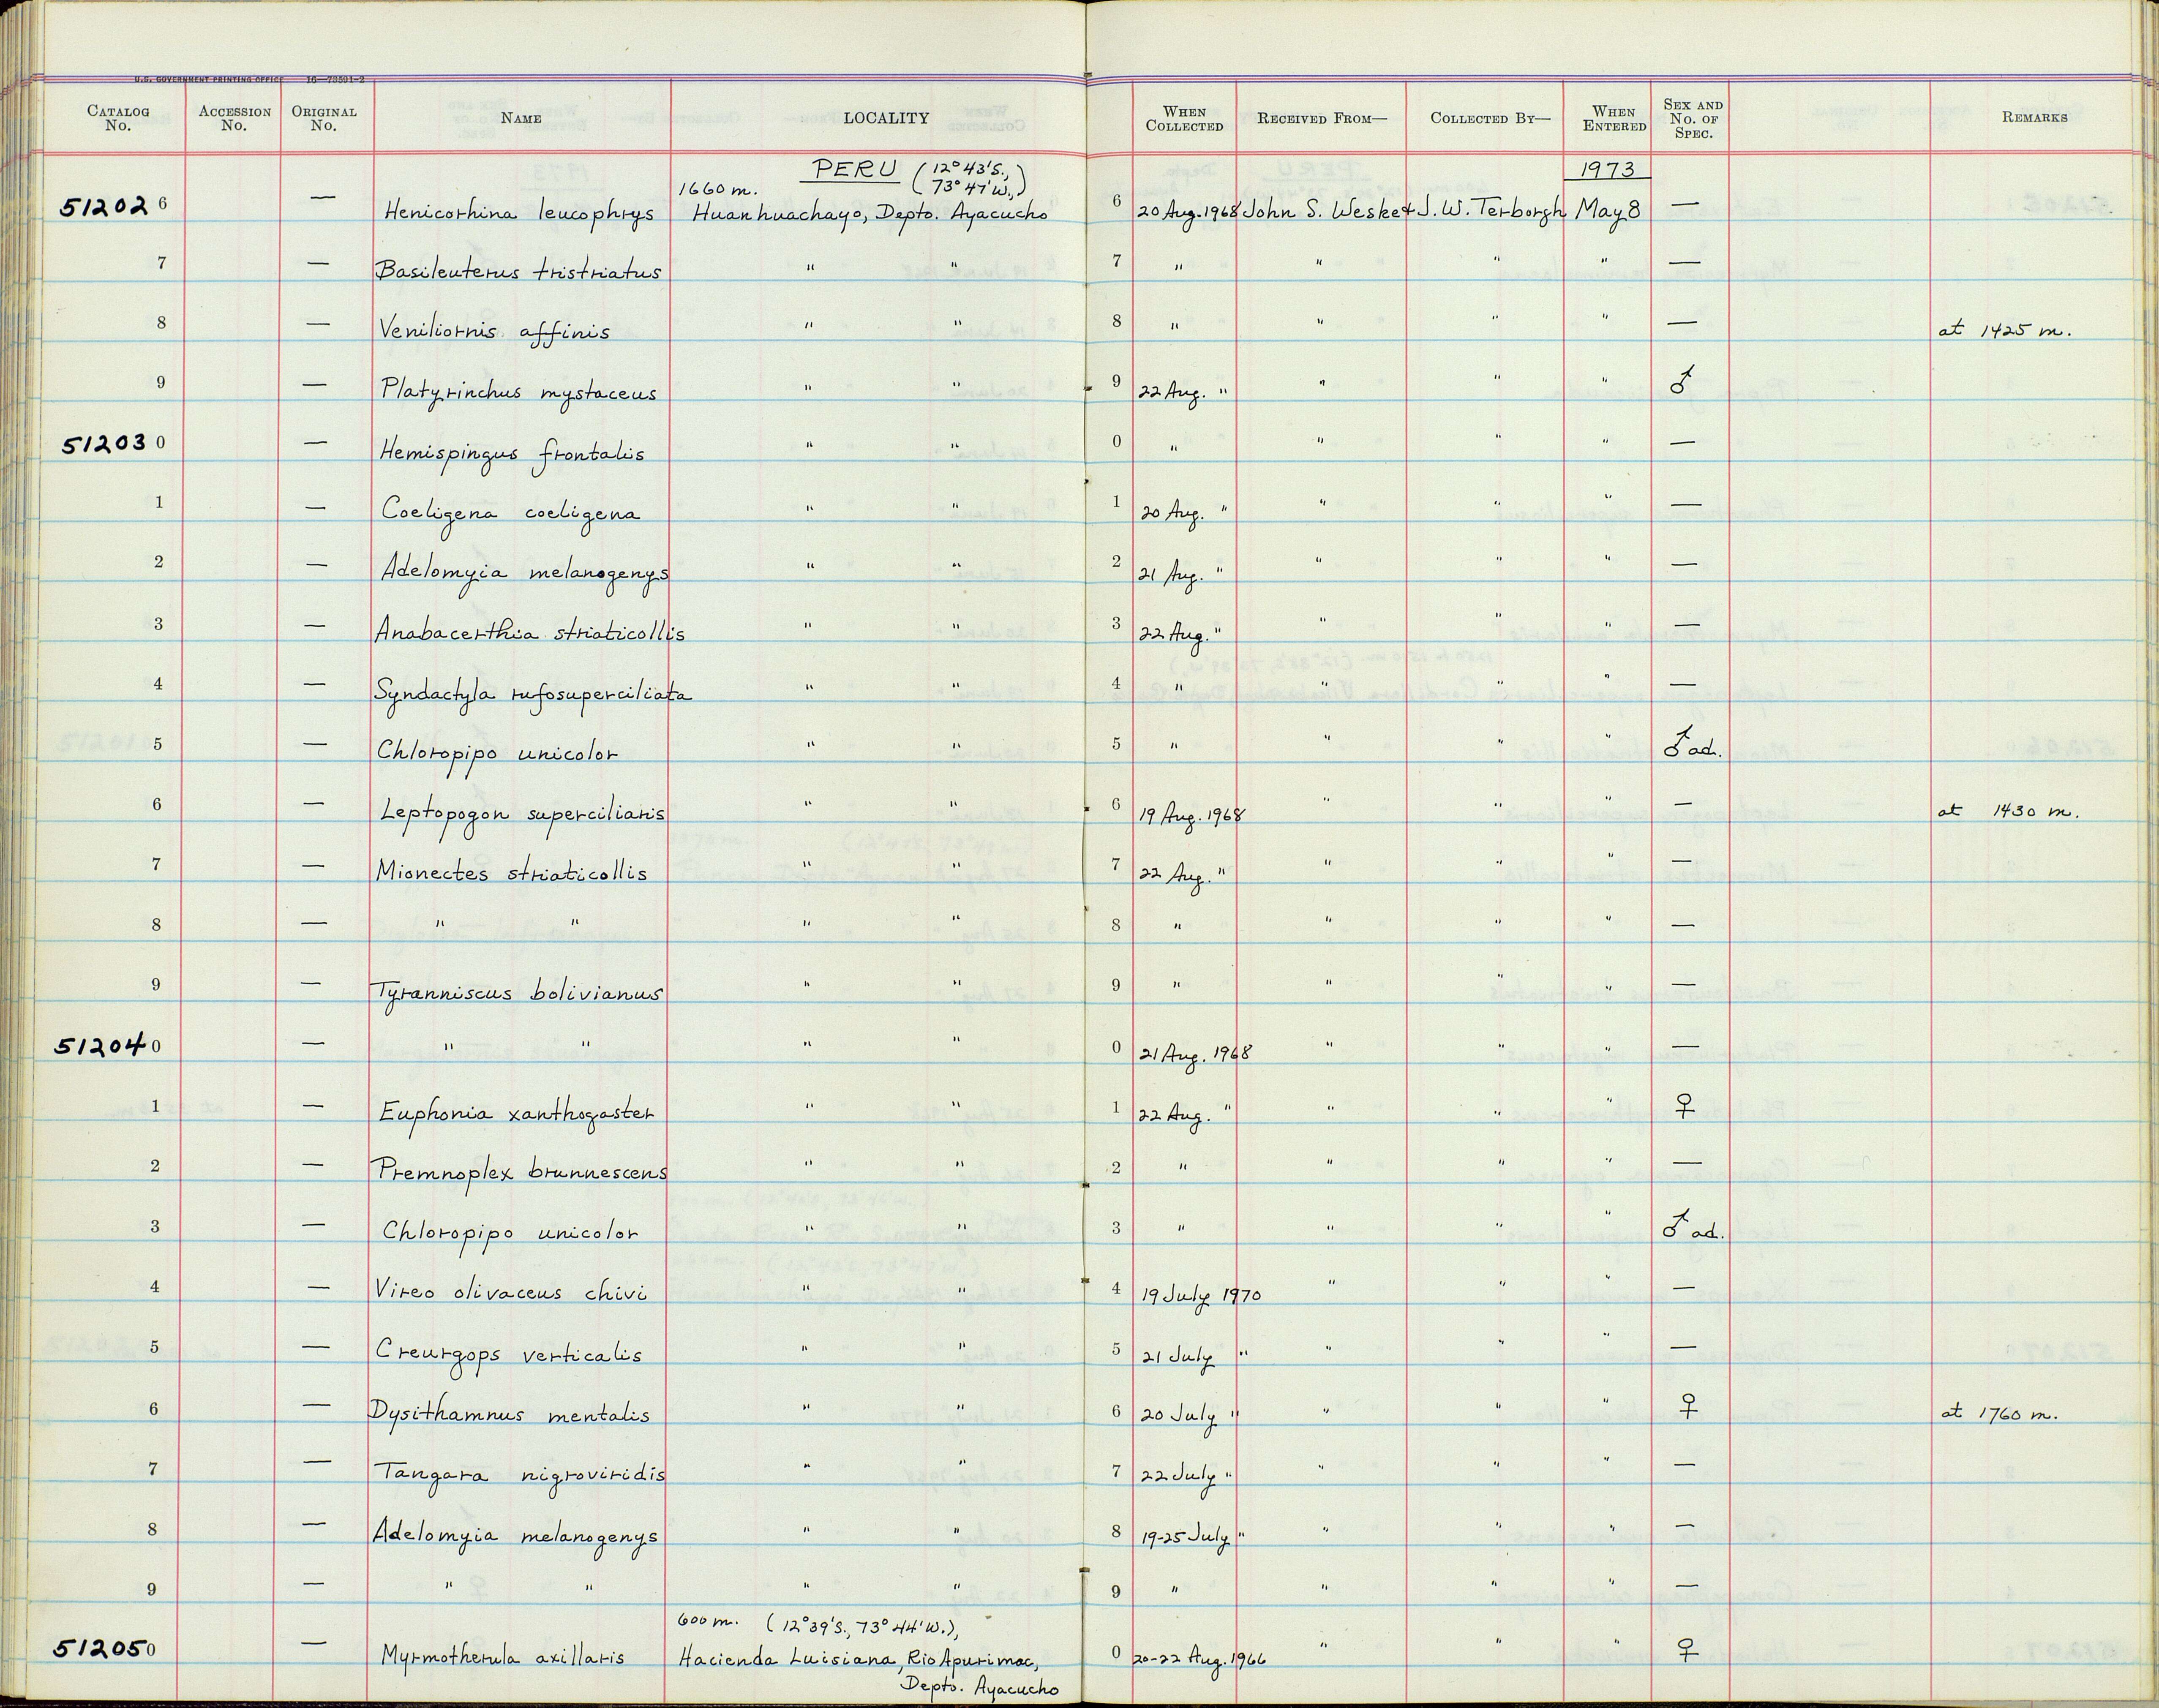 U.S. GOVERNMENT PRINTING OFFICE 16—73591-2
CATALOG No. ACCESSION No. ORIGINAL No. NAME LOCALITY WHEN COLLECTED RECEIVED FROM— COLLECTED BY— WHEN ENTERED SEX AND No. OF SPEC. REMARKS
PERU (12°43'S., 1973
1660 m. 73°47'W.,)
512026 — Henicorhina leucophrys Huanhuachayo, Depto. Ayacucho 6 20 Aug. 1968 John S. Weske & J. W. Terborgh May 8 —
7 — Basileuterus tristriatus " " 7 " " " " —
8 — Veniliornis affinis " " 8 " " " " — at 1425 m.
9 — Platyrinchus mystaceus " " 9 22 Aug. " " " " ♂
512030 — Hemispingus frontalis " " 0 " " " " —
1 — Coeligena coeligena " " 1 20 Aug. " " " " —
2 — Adelomyia melanogenys " " 2 21 Aug. " " " " —
3 — Anabacerthia striaticollis " " 3 22 Aug. " " " " —
4 — Syndactyla rufosuperciliata " " 4 " " " " —
5 — Chloropipo unicolor " " 5 " " " " ♂ ad.
6 — Leptopogon superciliaris " " 6 19 Aug. 1968 " " " — at 1430 m.
7 — Mionectes striaticollis " " 7 22 Aug. " " " " —
8 — " " " " 8 " " " " —
9 — Tyranniscus bolivianus " " 9 " " " " —
512040 — " " " " 0 21 Aug. 1968 " " " —
1 — Euphonia xanthogaster " " 1 22 Aug. " " " " ♀
2 — Premnoplex brunnescens " " 2 " " " " —
3 — Chloropipo unicolor " " 3 " " " " ♂ ad.
4 — Vireo olivaceus chivi " " 4 19 July 1970 " " " —
5 — Creurgops verticalis " " 5 21 July " " " " —
6 — Dysithamnus mentalis " " 6 20 July " " " " ♀ at 1760 m.
7 — Tangara nigroviridis " " 7 22 July " " " " —
8 — Adelomyia melanogenys " " 8 19-25 July " " " " —
9 — " " " " 9 " " " " —
600 m. (12°39'S., 73°44'W.),
512050 — Myrmotherula axillaris Hacienda Luisiana, Rio Apurimac, 0 20-22 Aug. 1966 " " " ♀
Depto. Ayacucho